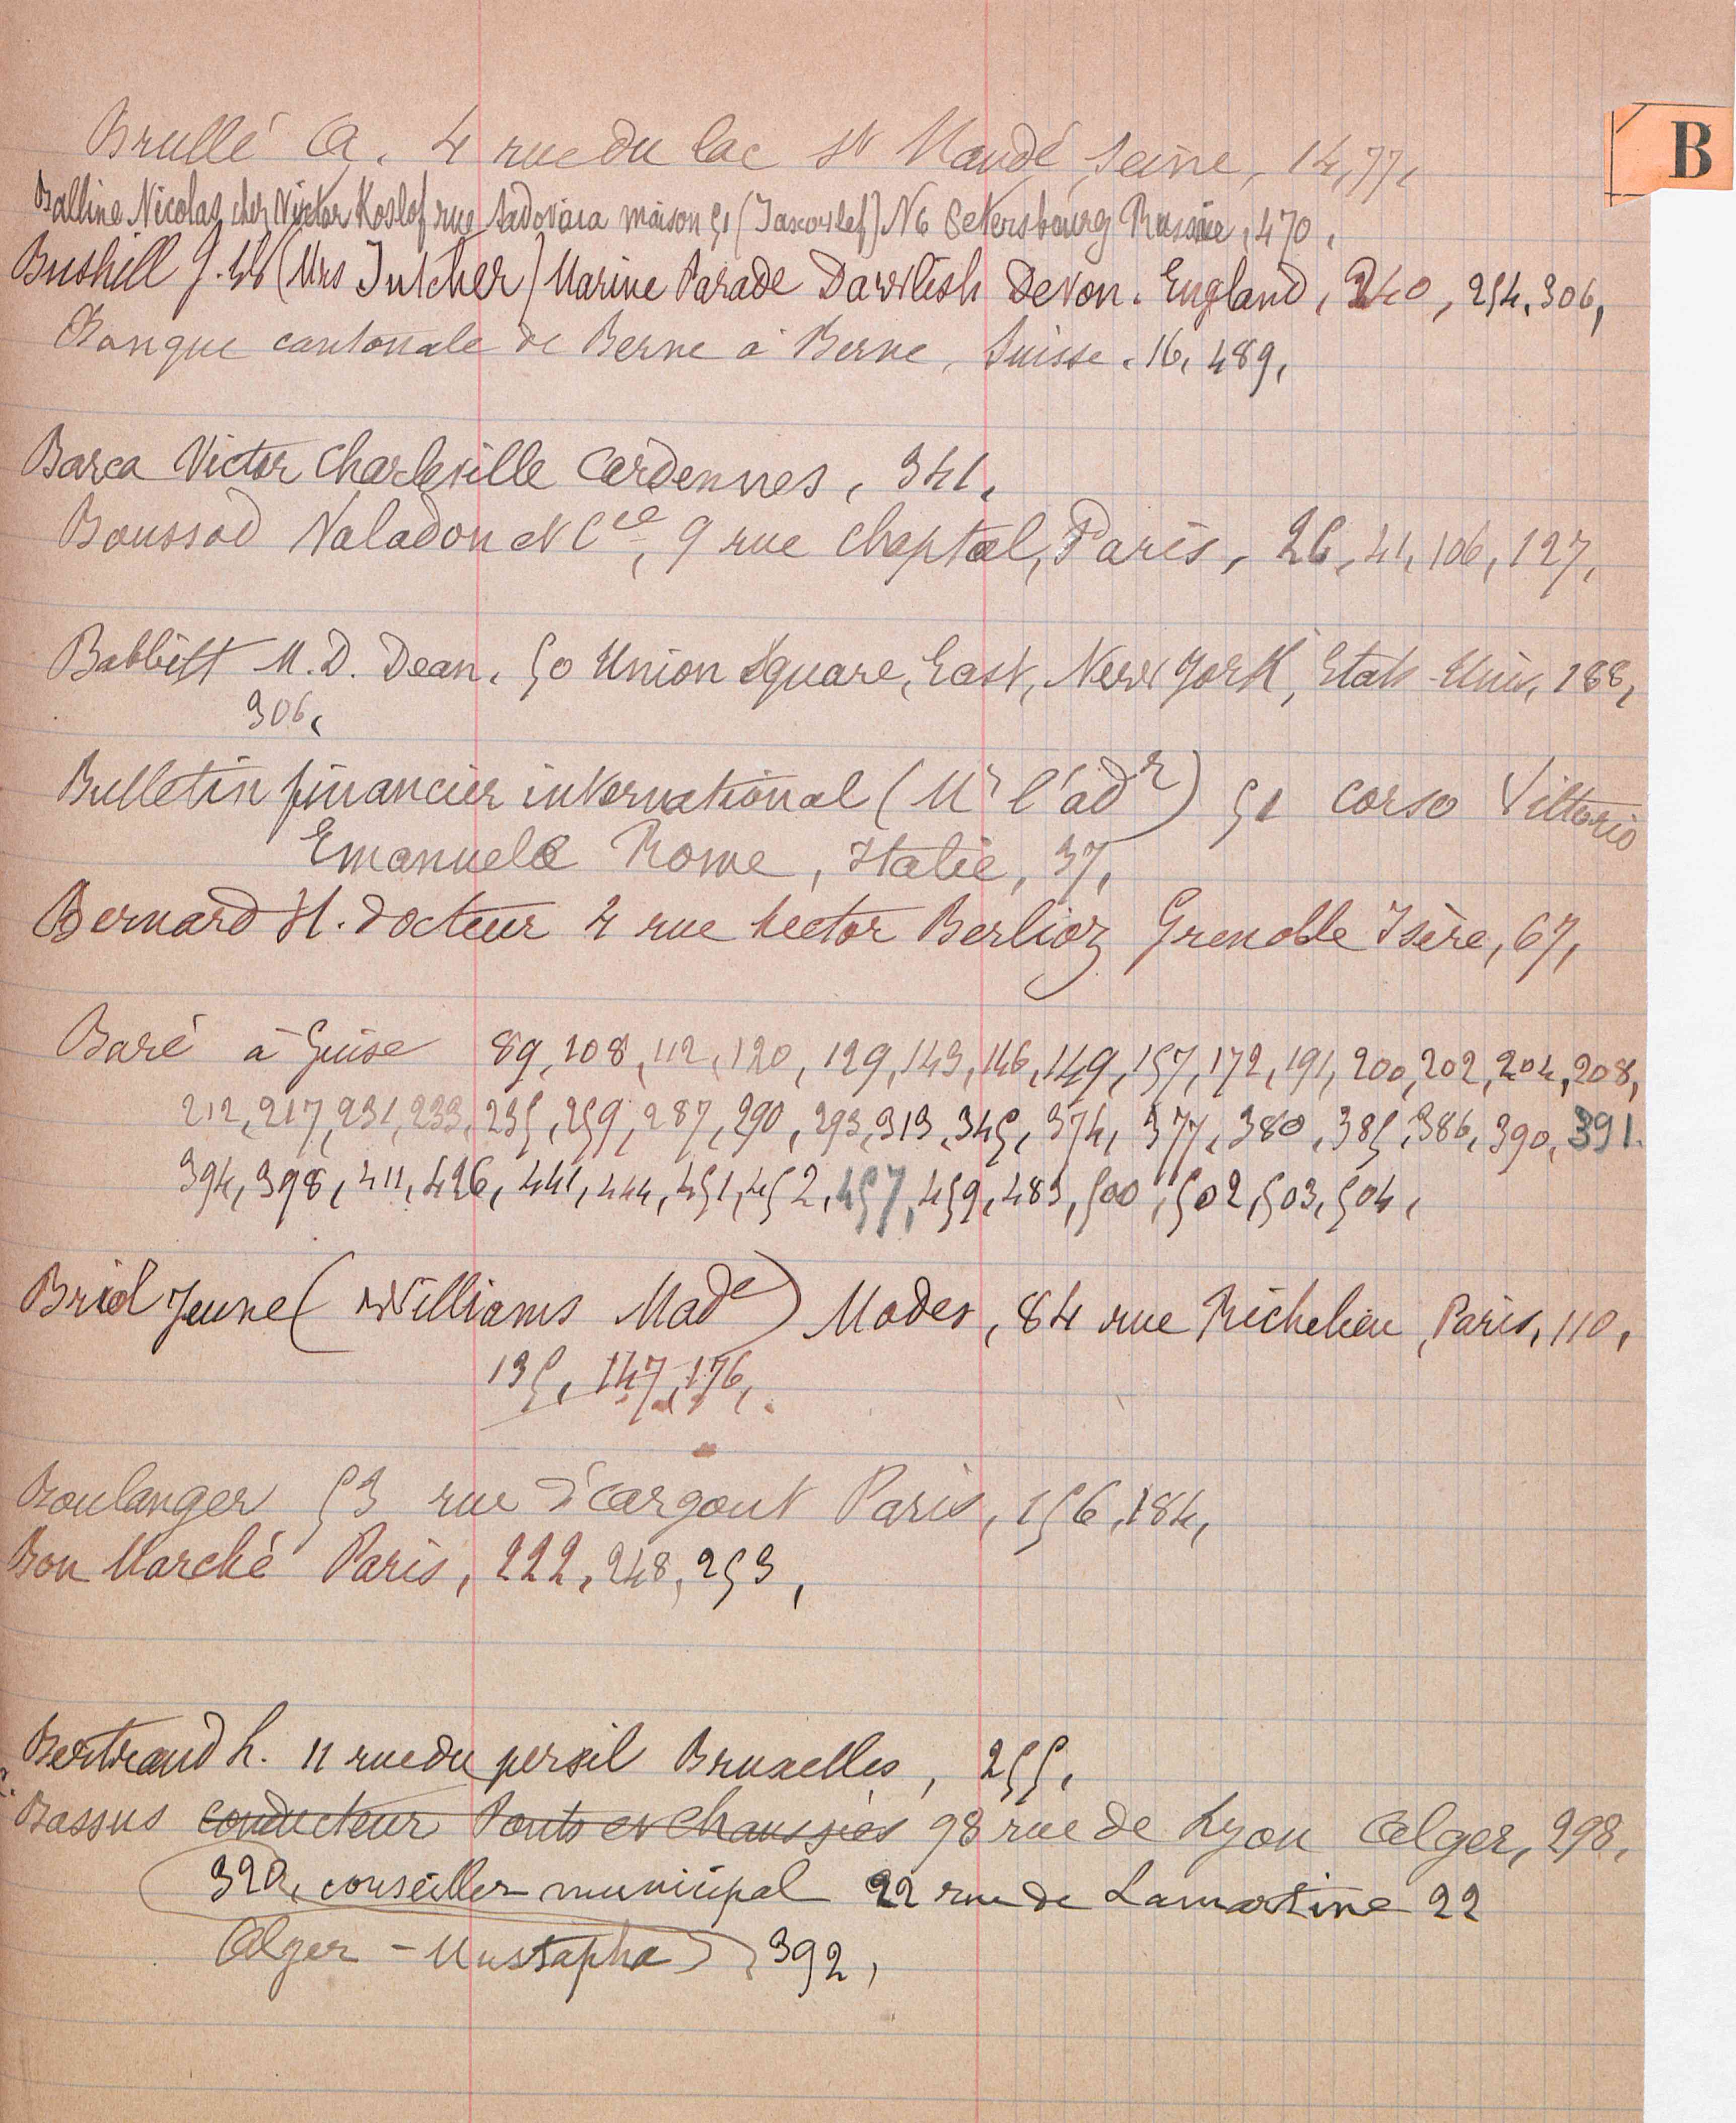 B
Brullé A. 4 rue du lac St Mandé Seine, 14, 77,
Balline Nicolas chez Victor Koslof rue Sadovaïa maison 51 (Jascovlef) N6 Petersbourg Russie, 470,
Bushill J. W (Mrs Jutcher) Marine Parade Dawlish Devon. England, 240, 254, 306,
Banque cantonale de Berne à Berne, Suisse. 16, 489,
Barca Victor Charleville Ardennes, 341,
Boussod Valadon et Cie, 9 rue Chaptal, Paris, 26, 41, 106, 127,
Babbitt M.D. Dean. 50 Union Square, East, New York, Etats-Unis, 188,
306,
Bulletin financier international (Mr l'adr) 51 corso Vittorio
Emanuele Rome, Italie, 37,
Bernard H. docteur 4 rue hector Berlioz Grenoble Isère, 67,
Baré à Guise 89, 108, 112, 120, 129, 143, 146, 149, 157, 172, 191, 200, 202, 204, 208,
212, 217, 231, 233, 235, 259, 287, 290, 293, 313, 345, 374, 377, 380, 385, 386, 390, 391.
394, 398, 411, 426, 441, 444, 451, 452, 457, 459, 483, 500, 502, 503, 504,
Briol Jeune (Williams Made) Modes, 84 rue Richelieu, Paris, 110,
135, 147, 176,
Boulanger 53 rue d'argout Paris, 156, 184,
Bon Marché Paris, 222, 248, 253,
Bertrand L. 11 rue du persil Bruxelles, 255,
Bassus conducteur Ponts et chaussées 98 rue de Lyon Alger, 298,
320, conseiller municipal 22 rue de Lamartine 22
Alger - Mustapha), 392,